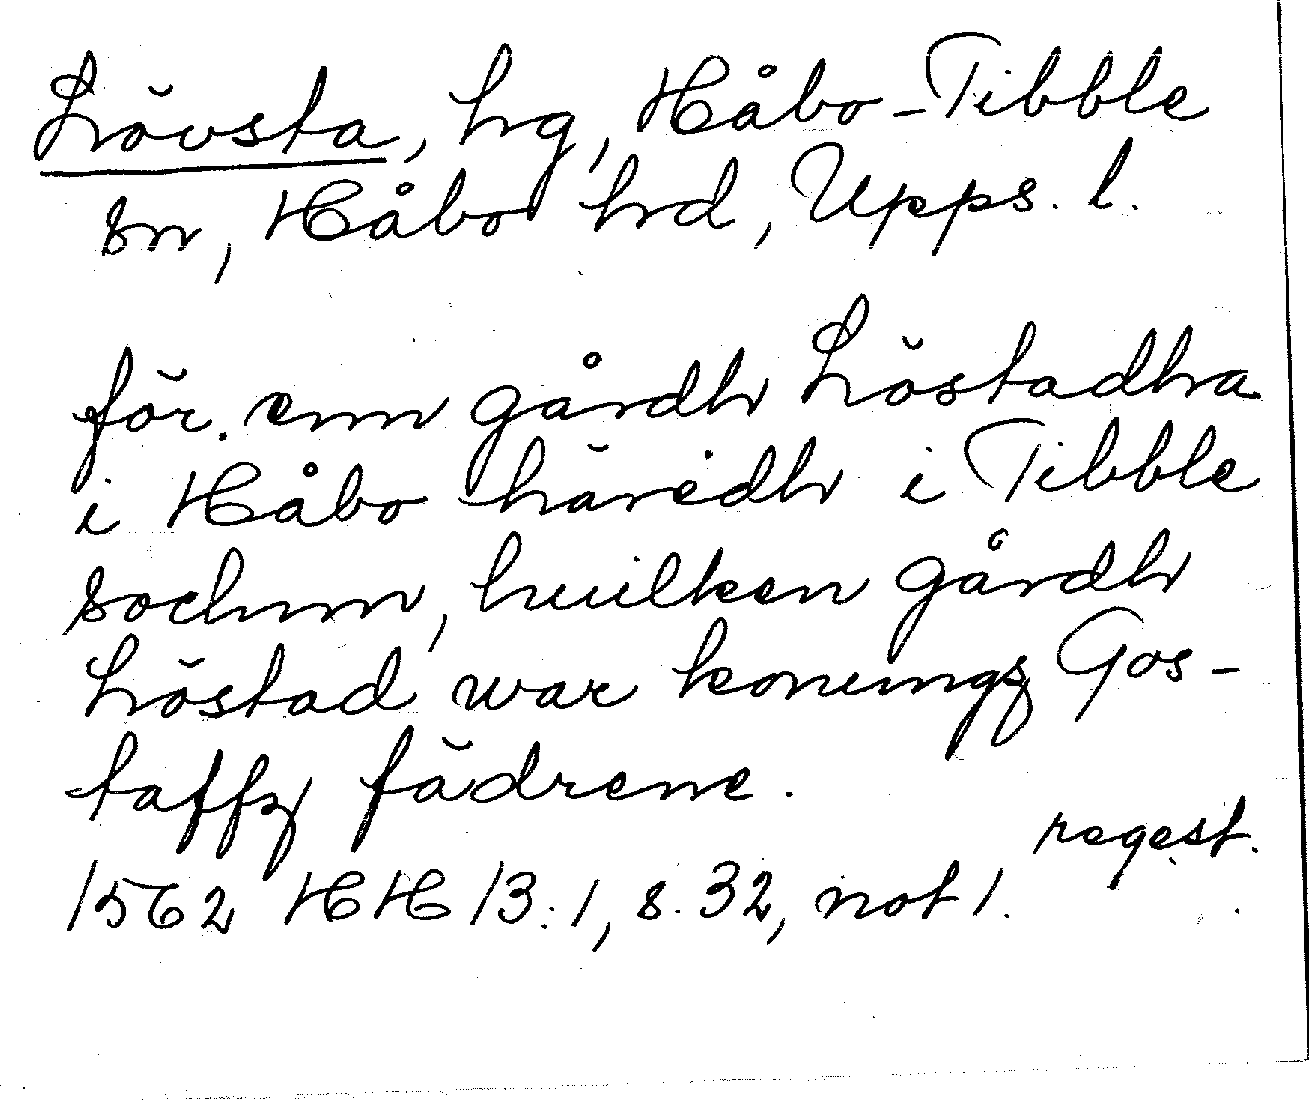 Lövsta, hg, Håbo-Tibble
sn, Håbo hrd, Upps. l.
för. enn gårdh Löstadha
i Håbo häredh i Tibble
sochnn, huilken gårdh
Löstad war konungz Gos-
taffz fädrene.
regest.
1562 HH 13:1, s. 32, not 1.